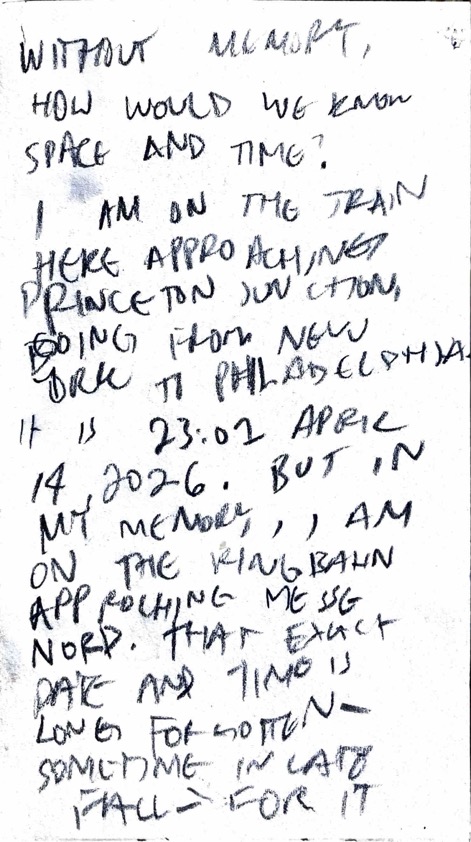 WITHOUT MEMORY,
HOW WOULD WE KNOW
SPACE AND TIME?
I AM ON THE TRAIN
HERE APPROACHING
PRINCETON JUNCTION,
GOING FROM NEW
YORK TO PHILADELPHIA.
IT IS 23:02 APRIL
14, 2026. BUT IN
MY MEMORY, I AM
ON THE RINGBAHN
APPROCHING MESSE
NORD. THAT EXACT
DATE AND TIME IS
LONG FORGOTTEN—
SOMETIME IN LATE
FALL— FOR IT